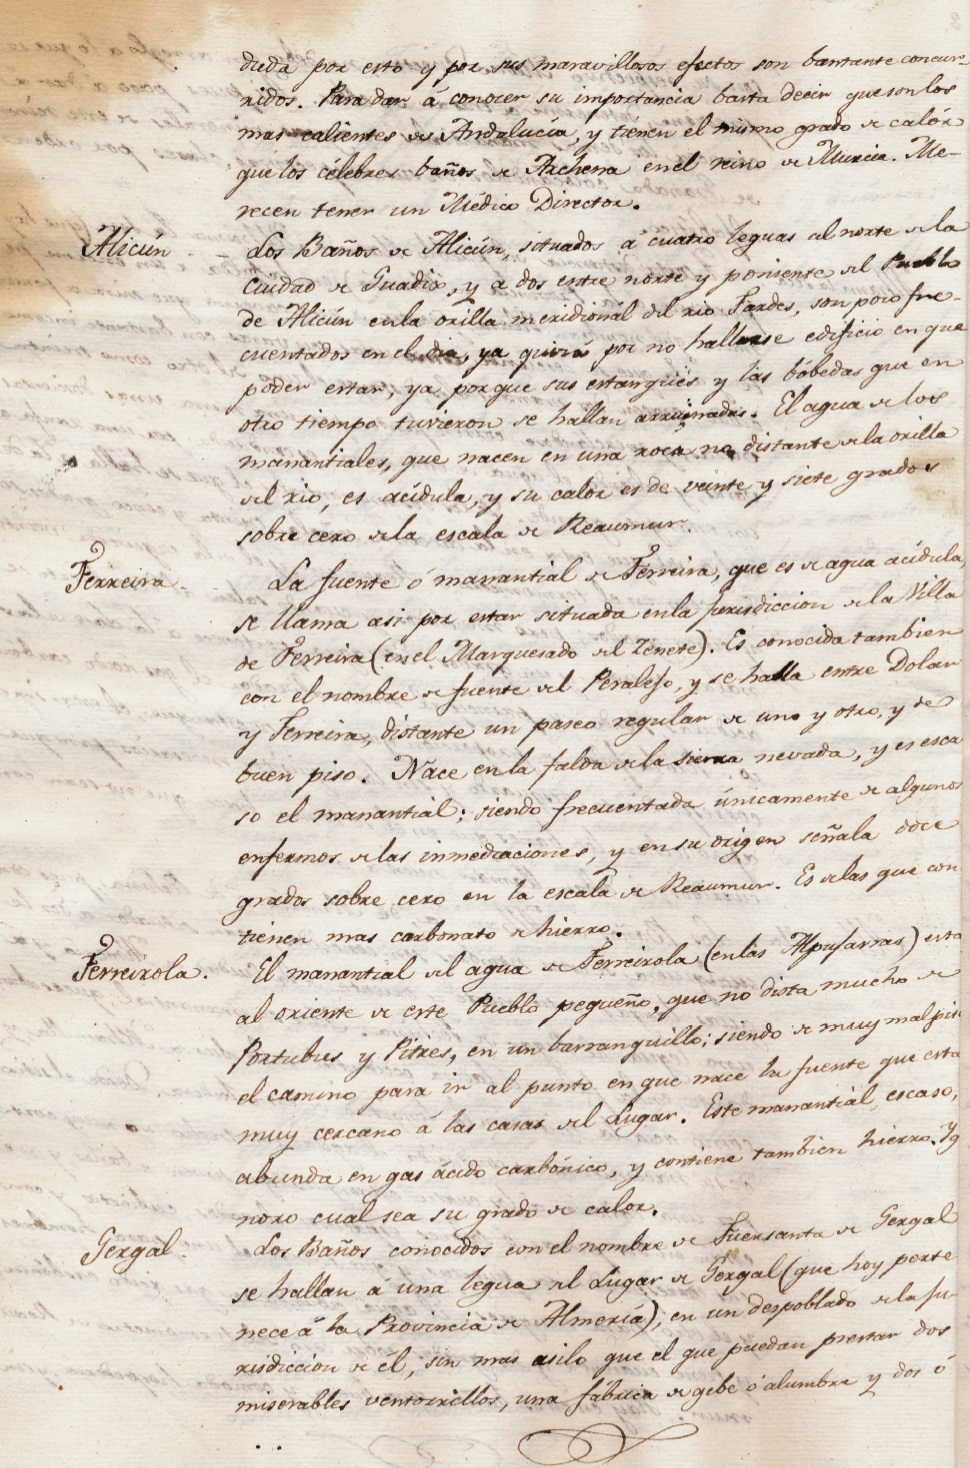 dieda por esto y por sus maravillosos efectos son bantante concur-
ridos. Para dar á conocer su importancia basta decir que son los
mas calientes de Andalucía, y tienen el mismo grado de calór
que los célebres baños de Archena en el reino de Murcia. Me-
recen tener un Médico Director.
Alicún - - Los Baños de Alicún, situados á cuatro leguas al norte de la
ciudad de Guadix, y a dos entre norte y poniente del Pueblo
de Alicún en la orilla meridionál del rio Fardes, son poco fre-
cuentados en el dia, ya quizás por no hallarse edificio en que
poder estar, ya porque sus estanques y las bóbedas que en
otro tiempo tuvieron se hallan arruinadas. El agua de los
manantiales, que nacen en una roca no distante de la orilla
del rio, es acídula, y su calor es de veinte y siete grados
sobre cero de la escala de Reaumur.
Ferreira - - La fuente ó manantial de Ferreira, que es de agua acídula,
se llama asi por estar situada en la jurisdiccion de la Villa
de Ferreira (en el Marquesado del Zenete). Es conocida tambien
con el nombre de fuente del Peralejo, y se halla entre Dolar
y Ferreira, distante un paseo regular de uno y otro, y de
buen piso. Nace en la falda de la sierra nevada, y es esca
so el manantiál; siendo frecuentada únicamente de algunos
enfermos de las inmediaciones, y en su origen señala doce
grados sobre cero en la escala de Reaumur. Es de las que con
tienen mas carbonato de hierro.
Ferreirola. El manantial del agua de Ferreirola (en las Alpujarras) esta
al oriente de este Pueblo pequeño, que no dista mucho de
Portubus y Pitres, en un barranquillo; siendo de muy mal piso
el camino para ir al punto en que nace la fuente que esta
muy cercano á las casas del Lugar. Este manantiál, escaso,
abunda en gas ácido carbónico, y contiene tambien hierro. Yg
noro cual sea su grado de calor.
Gergal. Los Baños conocidos con el nombre de Fuensanta de Gergal
se hallan á una legua del Lugar de Gergal (que hoy perte
nece á la Provincia de Almería), en un despoblado de la ju-
risdiccion de él, sin mas asilo que el que puedan prestar dos
miserables ventorrillos, una fábrica de gebe ó alumbre y dos ó